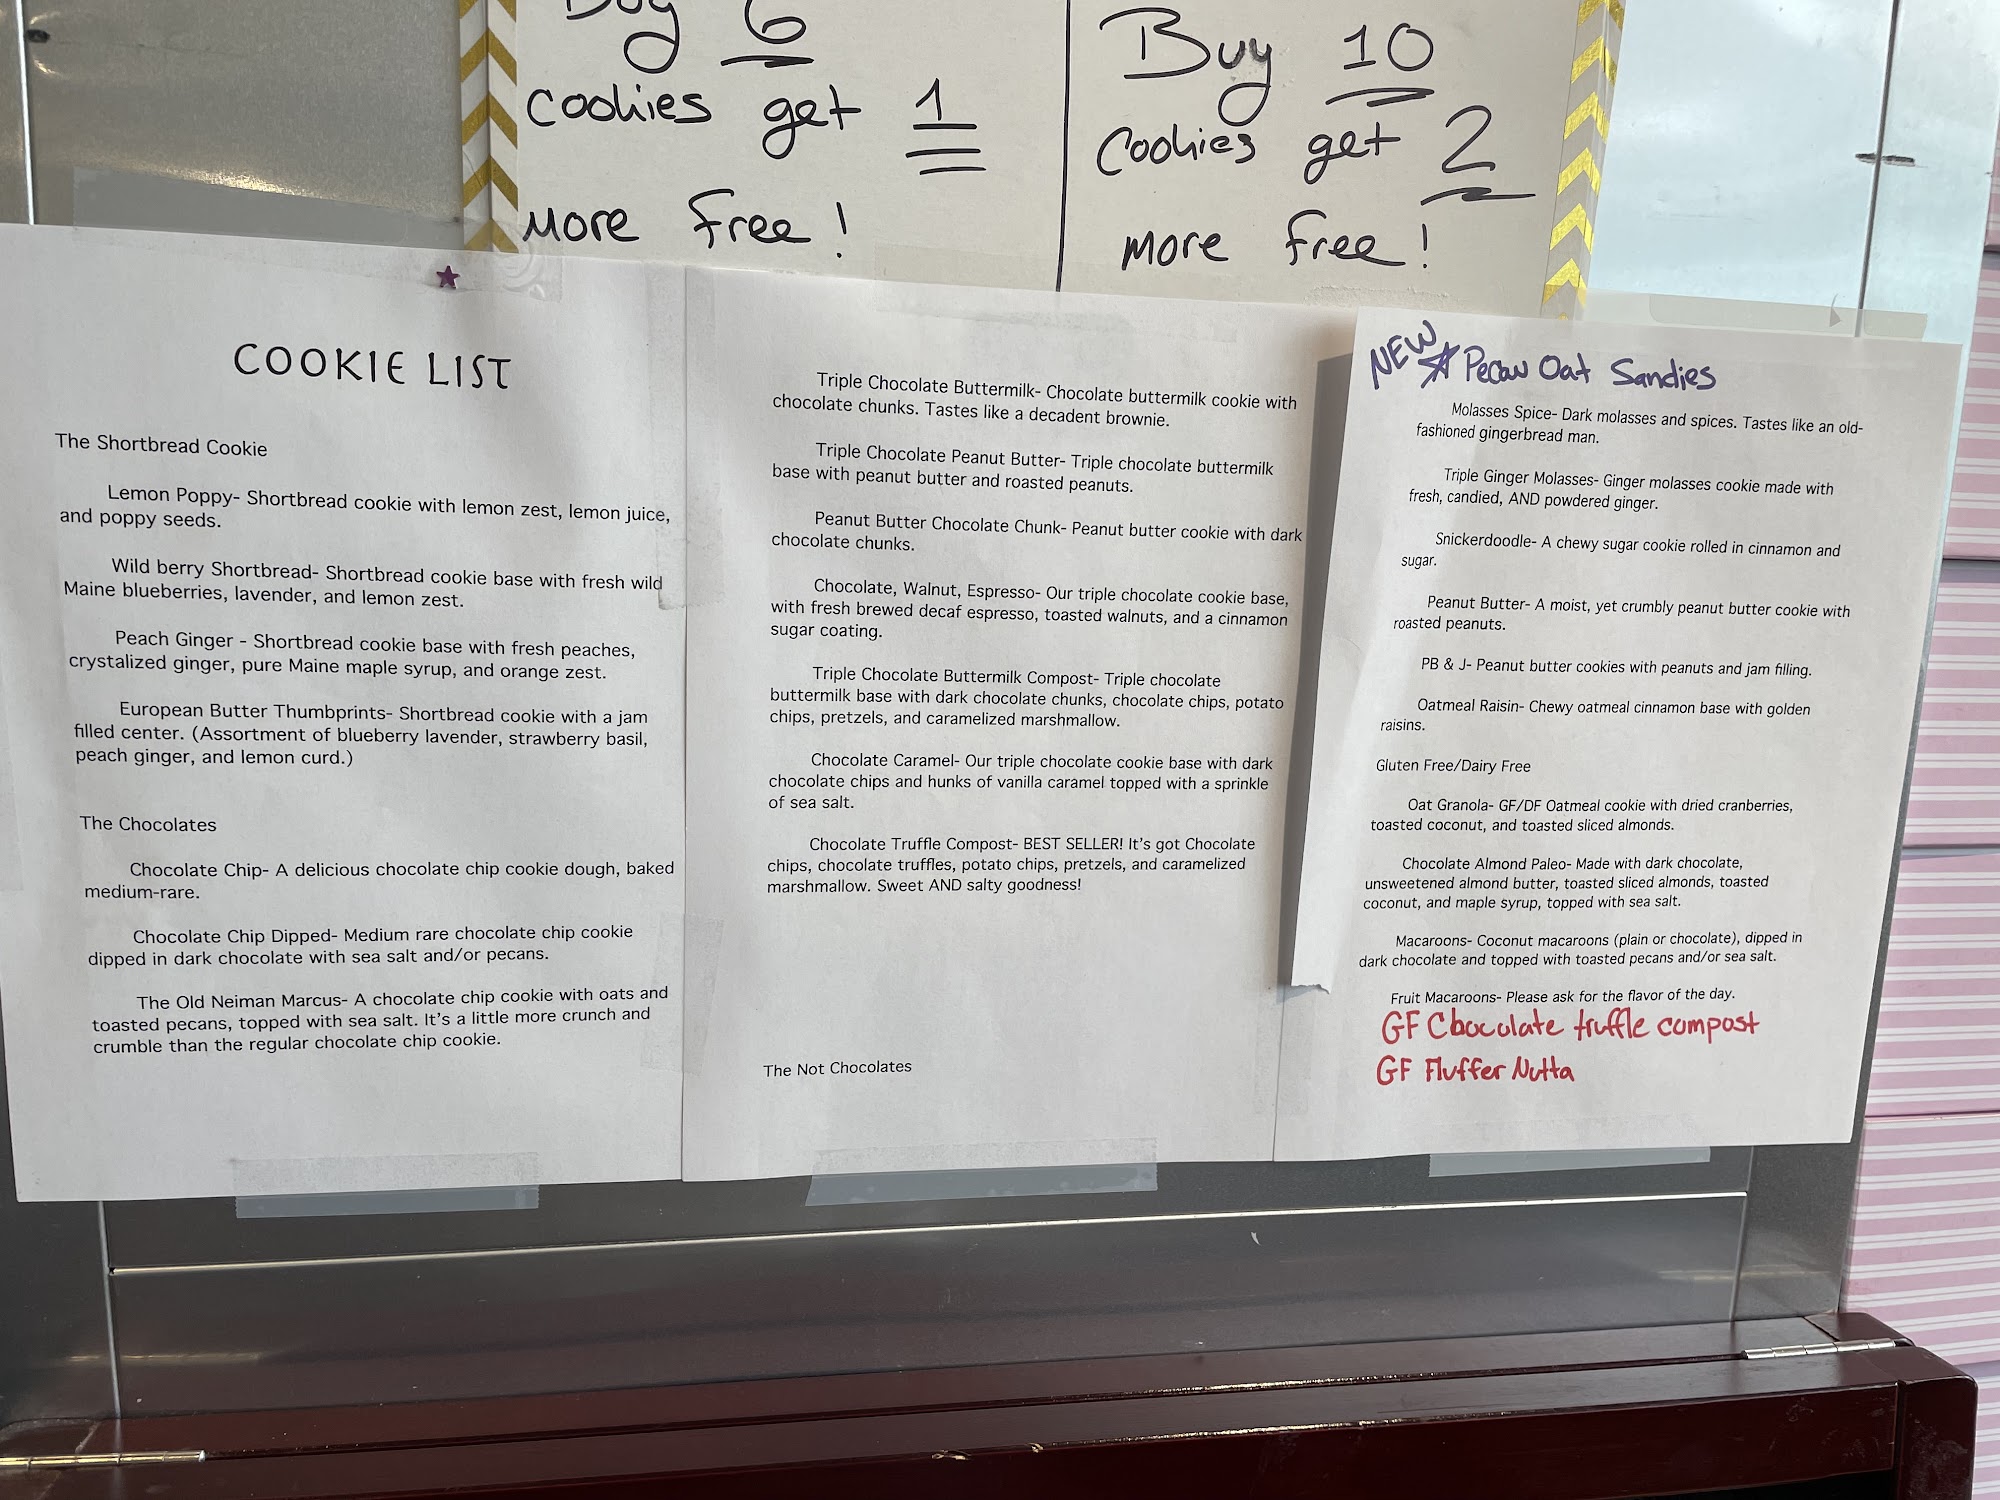 Buy 6
cookies get 1
more free!
Buy 10
Cookies get 2
more free!
COOKIE LIST
The Shortbread Cookie
Lemon Poppy- Shortbread cookie with lemon zest, lemon juice,
and poppy seeds.
Wild berry Shortbread- Shortbread cookie base with fresh wild
Maine blueberries, lavender, and lemon zest.
Peach Ginger - Shortbread cookie base with fresh peaches,
crystalized ginger, pure Maine maple syrup, and orange zest.
European Butter Thumbprints- Shortbread cookie with a jam
filled center. (Assortment of blueberry lavender, strawberry basil,
peach ginger, and lemon curd.)
The Chocolates
Chocolate Chip- A delicious chocolate chip cookie dough, baked
medium-rare.
Chocolate Chip Dipped- Medium rare chocolate chip cookie
dipped in dark chocolate with sea salt and/or pecans.
The Old Neiman Marcus- A chocolate chip cookie with oats and
toasted pecans, topped with sea salt. It's a little more crunch and
crumble than the regular chocolate chip cookie.
Triple Chocolate Buttermilk- Chocolate buttermilk cookie with
chocolate chunks. Tastes like a decadent brownie.
Triple Chocolate Peanut Butter- Triple chocolate buttermilk
base with peanut butter and roasted peanuts.
Peanut Butter Chocolate Chunk- Peanut butter cookie with dark
chocolate chunks.
Chocolate, Walnut, Espresso- Our triple chocolate cookie base,
with fresh brewed decaf espresso, toasted walnuts, and a cinnamon
sugar coating.
Triple Chocolate Buttermilk Compost- Triple chocolate
buttermilk base with dark chocolate chunks, chocolate chips, potato
chips, pretzels, and caramelized marshmallow.
Chocolate Caramel- Our triple chocolate cookie base with dark
chocolate chips and hunks of vanilla caramel topped with a sprinkle
of sea salt.
Chocolate Truffle Compost- BEST SELLER! It's got Chocolate
chips, chocolate truffles, potato chips, pretzels, and caramelized
marshmallow. Sweet AND salty goodness!
The Not Chocolates
NEW Pecan Oat Sandies
Molasses Spice- Dark molasses and spices. Tastes like an old-
fashioned gingerbread man.
Triple Ginger Molasses- Ginger molasses cookie made with
fresh, candied, AND powdered ginger.
Snickerdoodle- A chewy sugar cookie rolled in cinnamon and
sugar.
Peanut Butter- A moist, yet crumbly peanut butter cookie with
roasted peanuts.
PB & J- Peanut butter cookies with peanuts and jam filling.
Oatmeal Raisin- Chewy oatmeal cinnamon base with golden
raisins.
Gluten Free/Dairy Free
Oat Granola- GF/DF Oatmeal cookie with dried cranberries,
toasted coconut, and toasted sliced almonds.
Chocolate Almond Paleo- Made with dark chocolate,
unsweetened almond butter, toasted sliced almonds, toasted
coconut, and maple syrup, topped with sea salt.
Macaroons- Coconut macaroons (plain or chocolate), dipped in
dark chocolate and topped with toasted pecans and/or sea salt.
Fruit Macaroons- Please ask for the flavor of the day.
GF Chocolate truffle compost
GF Fluffer Nutta